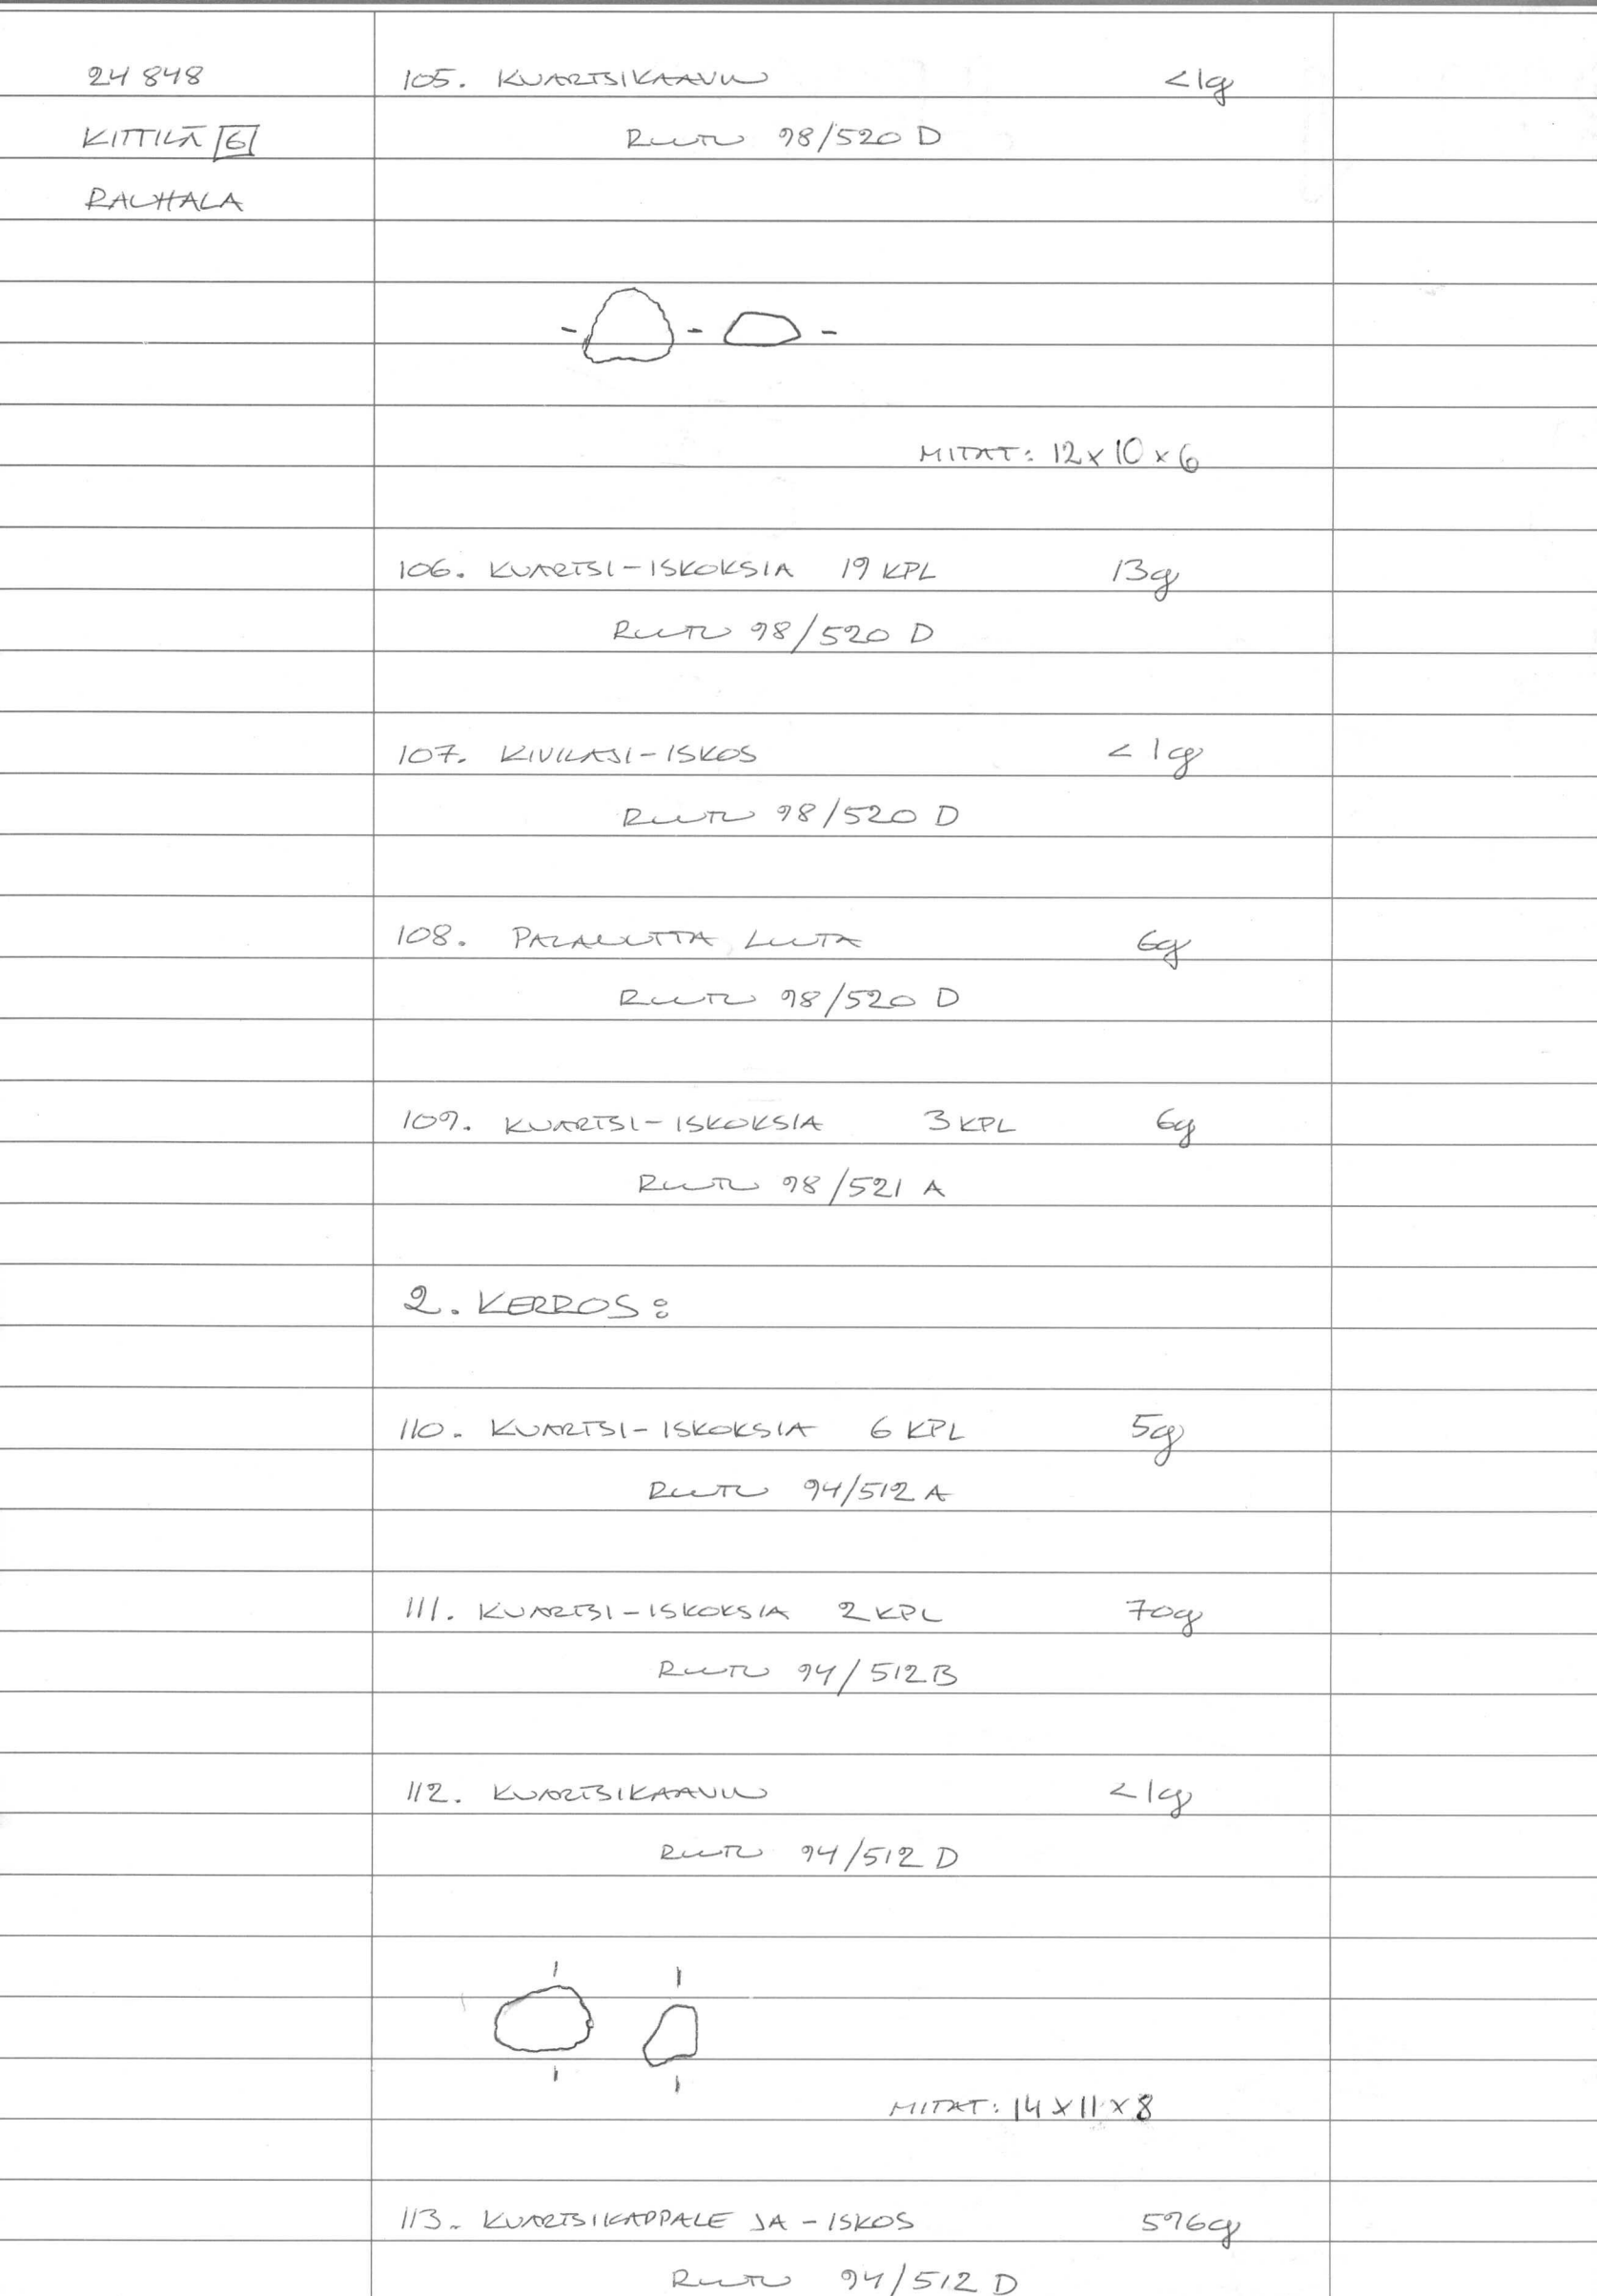 24 848
KITTILÄ 6
RAUHALA
105. KVARTSIKAAVIN <1g
RUUTU 98/520 D
MITAT: 12x10x6
106. KVARTSI-ISKOKSIA 19 KPL 13g
RUUTU 98/520 D
107. KIVILAJI-ISKOS <1g
RUUTU 98/520 D
108. PALANUTTA LUUTA 6g
RUUTU 98/520 D
109. KVARTSI-ISKOKSIA 3 KPL 6g
RUUTU 98/521 A
2. KERROS:
110. KVARTSI-ISKOKSIA 6 KPL 5g
RUUTU 94/512 A
111. KVARTSI-ISKOKSIA 2 KPL 70g
RUUTU 94/512 B
112. KVARTSIKAAVIN <1g
RUUTU 94/512 D
MITAT: 14x11x8
113. KVARTSIKAPPALE JA -ISKOS 596g
RUUTU 94/512 D